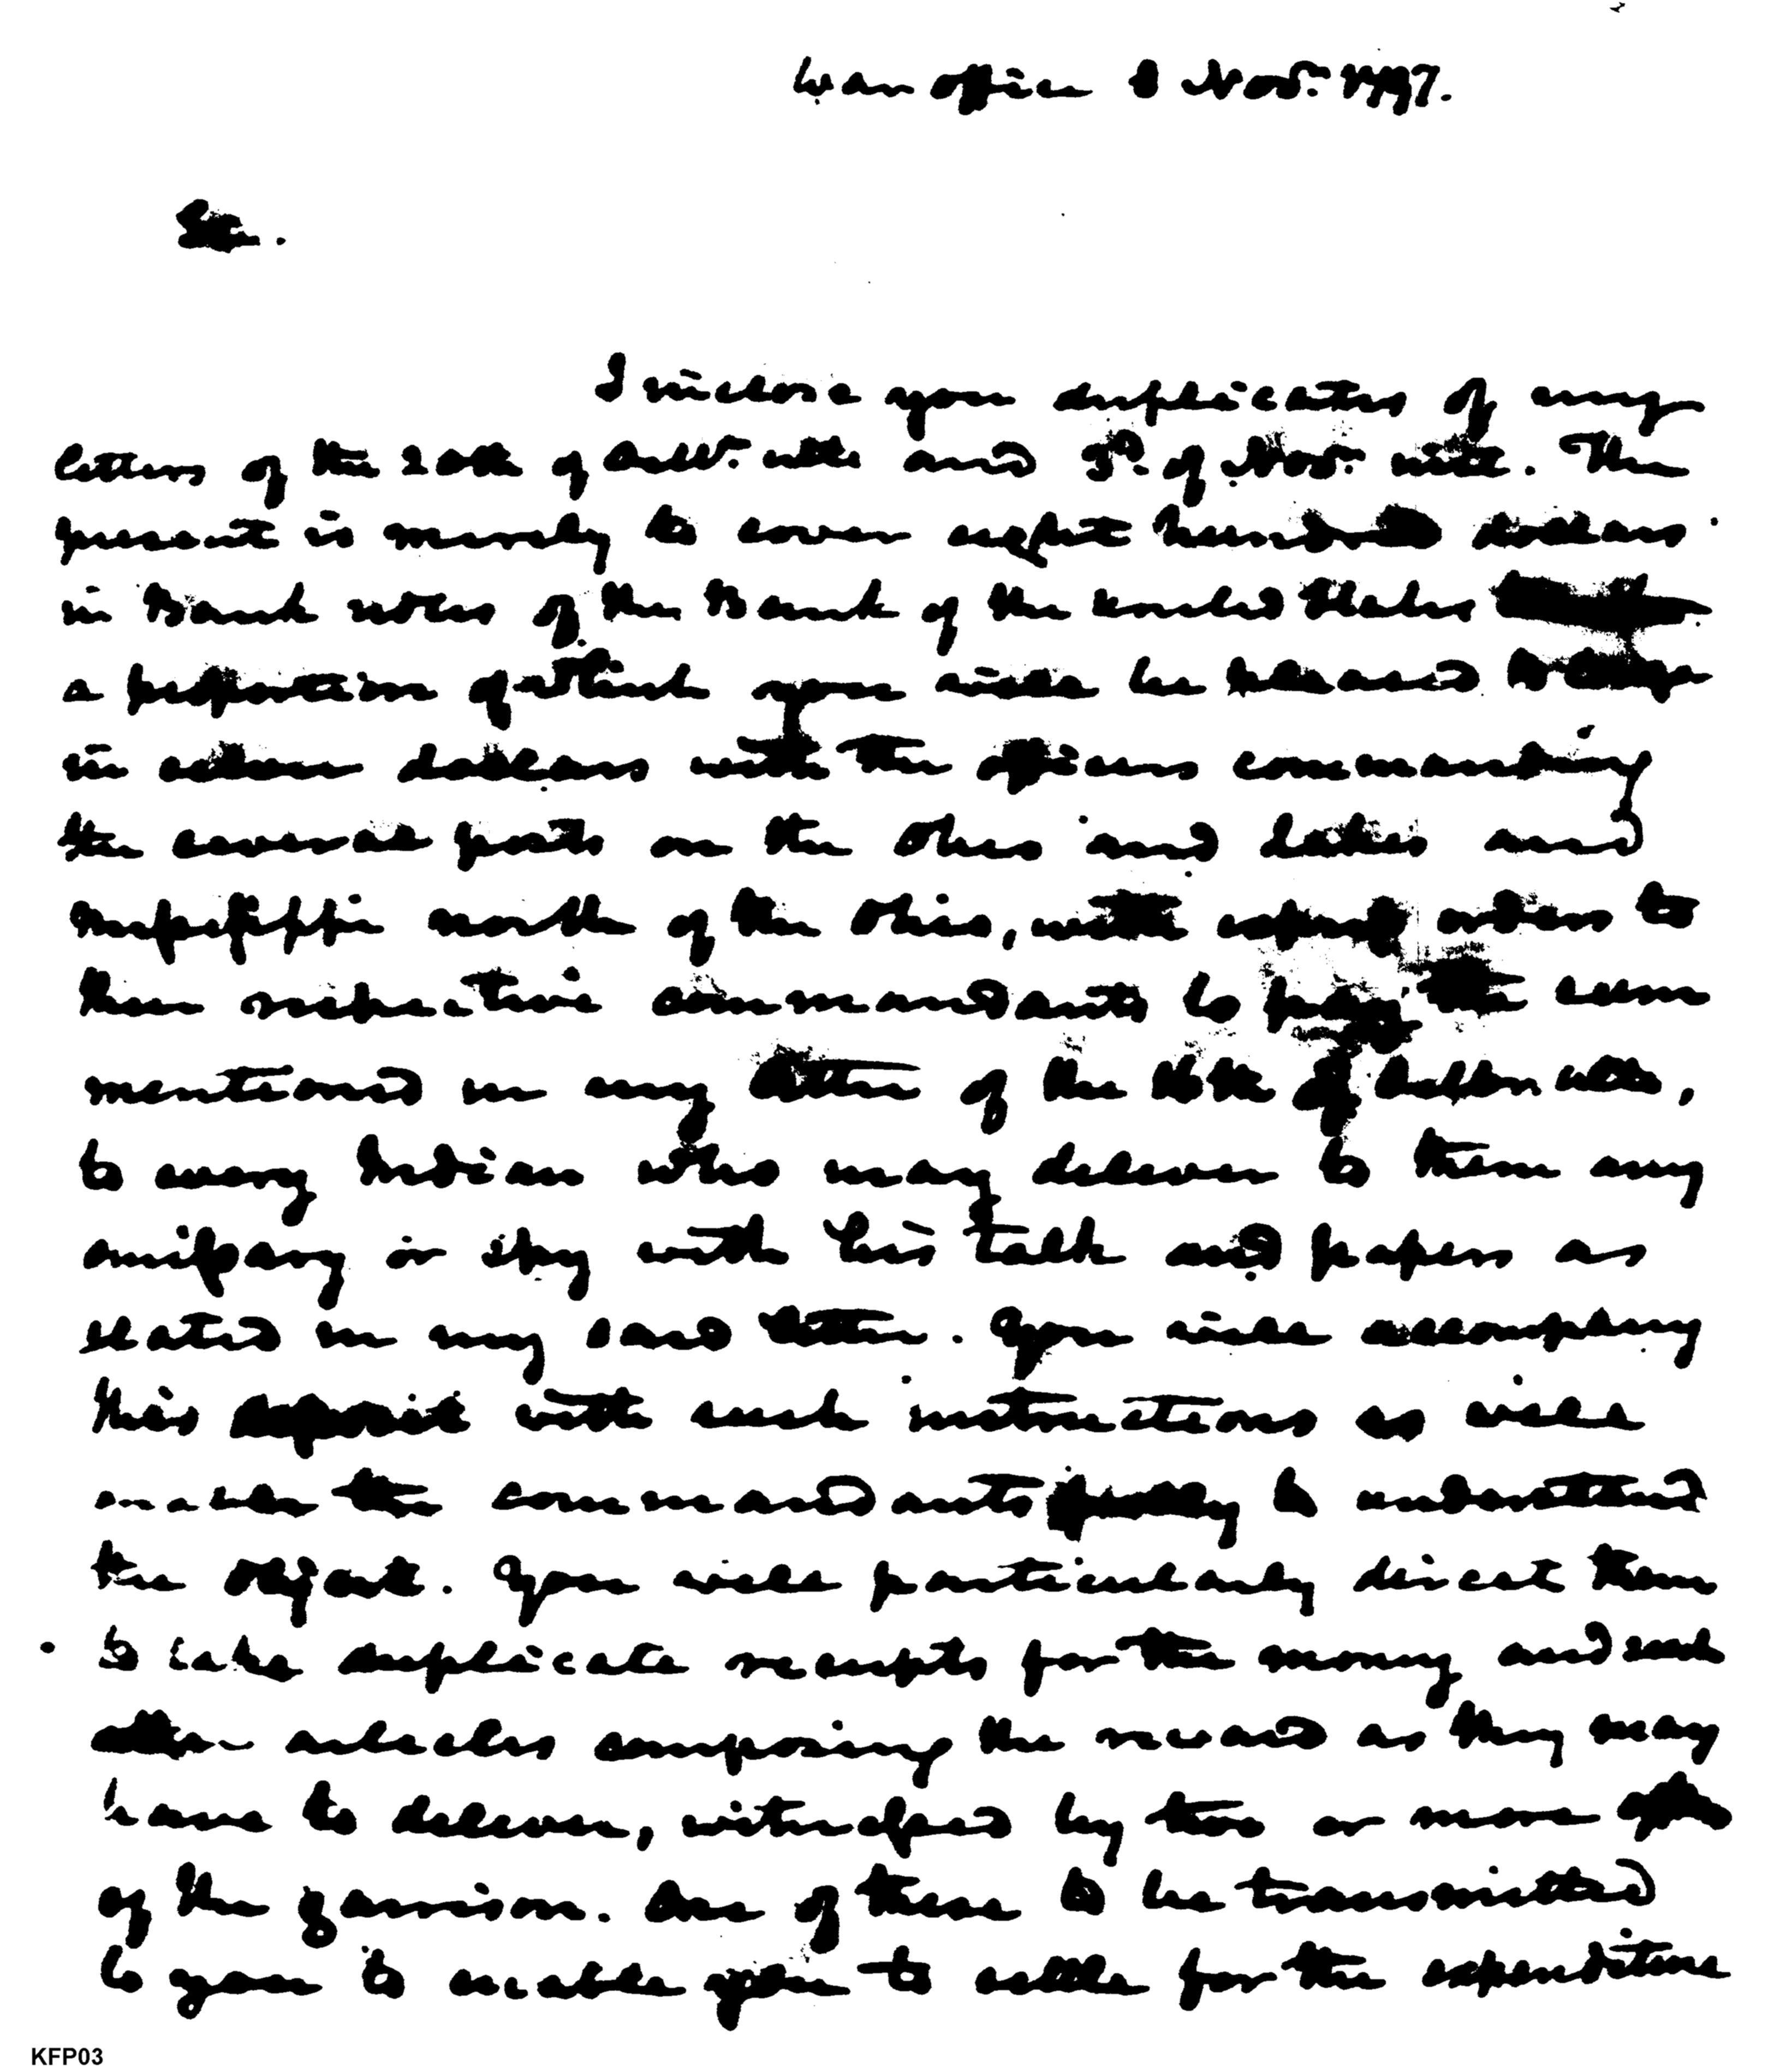 War office 8 Nov.r 1797.
Sir.
I inclose you duplicates of my
letters of the 20th of ulto and 3d. of Nov.r The
present is merely to cover eight hundred dollars
in Bank notes of the Bank of the United States
a proportion of which you will be pleased to lodge
in silver dollars with the officers commanding
the several posts on the Ohio and lakes and
Missisippi north of the Ohio, with express orders to
the respective commandants to pay the sum
mentioned in my letter of the 16th of ulto,
to any Indian who may deliver to them any
emissary or spy with his talk and papers as
stated in my said letter. You will accompany
this deposit with such instructions as will
enable the commandants fully to understand
the object. You will particularly direct them
to take duplicate receipts for the money and such
other articles composing the reward as they may
have to deliver, witnessed by two or more
of the garrison. One of these to be transmitted
to you to enable you to settle for the expenditure
KFP03